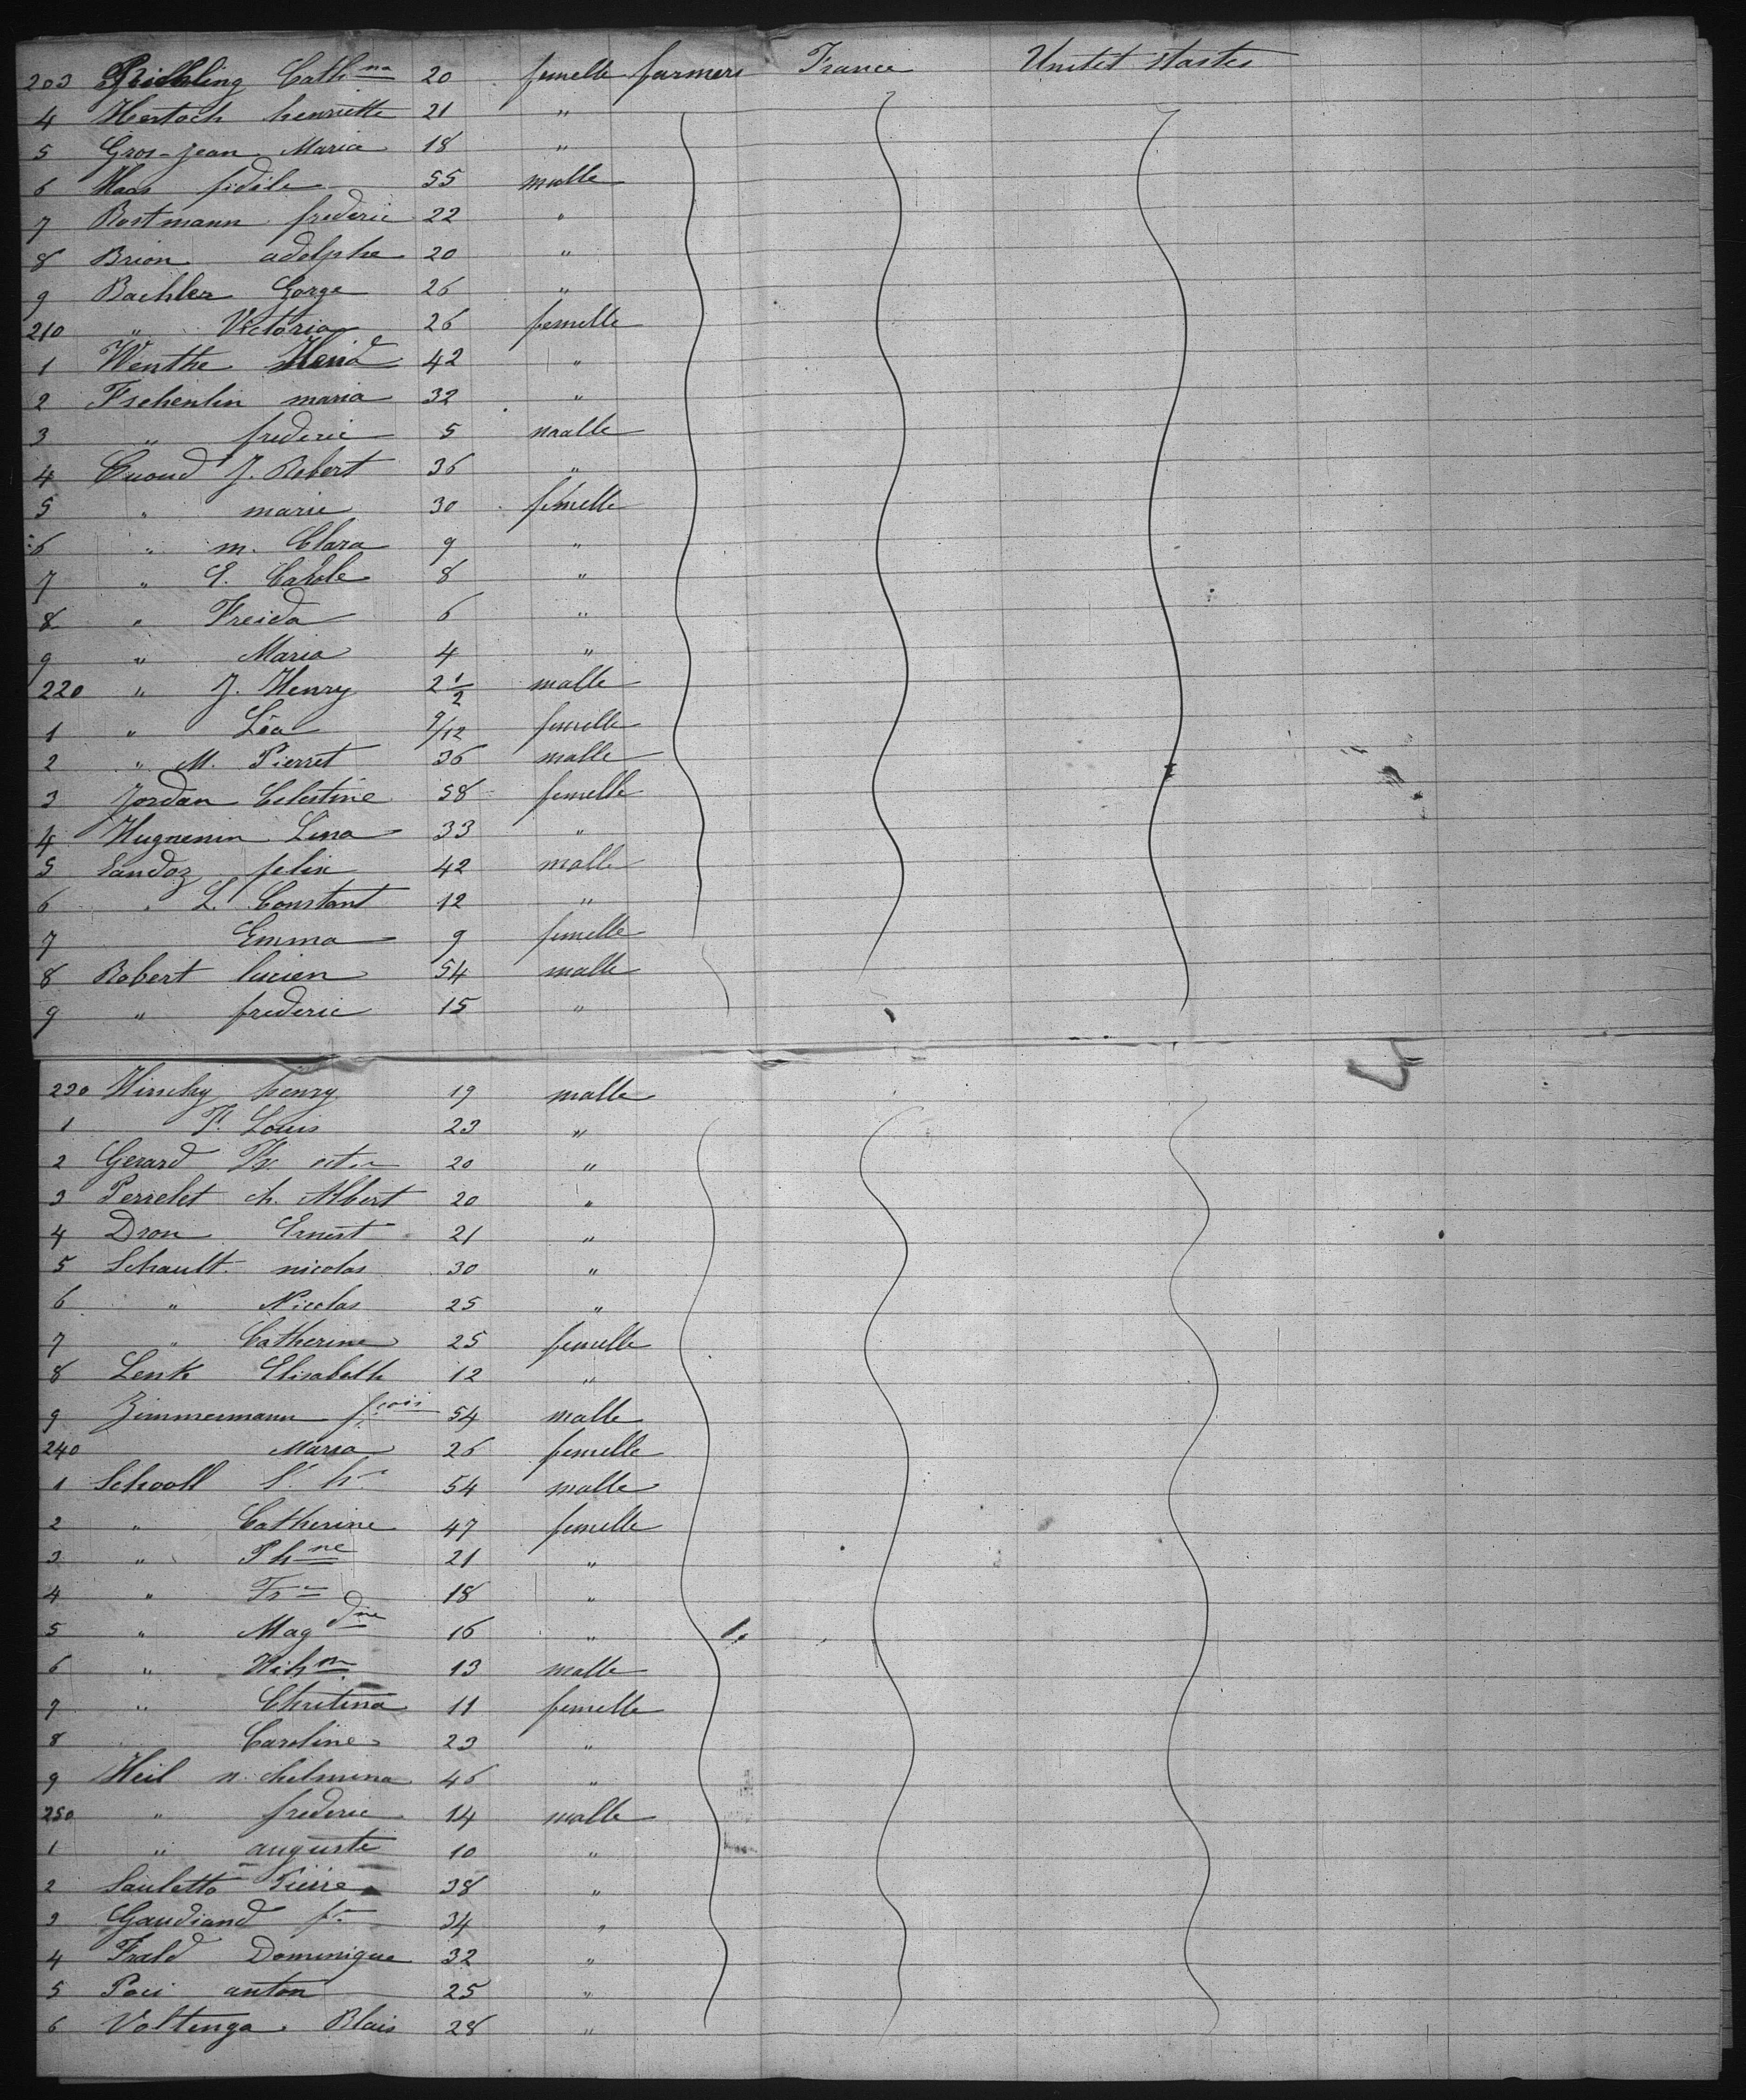 203 Cath na 20 femelle farmers France Unitet stastes
4 Hertoch henriette 21 "
5 Gros-Jean Maria 18 "
6 Haas fidéle 55 malle
7 Rostmann frederic 22 "
8 Brion adolphe 20 "
9 Bachler Gorge 26 "
210 " Victoria 26 femelle
1 Wenthe 42 "
2 Fschenlin maria 32 "
3 " frederic 5 malle
4 Cuoud J. Robert 36 "
5 " marie 30 femelle
6 " m. Clara 9 "
7 " E. Carole 8 "
8 " Freida 6 "
9 " Maria 4 "
220 " J. Henry 2 1/2 malle
1 " Léa 9/12 femelle
2 " M. Pierret 36 malle
3 Jordan Celestine 58 femelle
4 Hugnenin Lina 33 "
5 Sandoz felix 42 malle
6 " L. Constant 12 "
7 Emma 9 femelle
8 Robert lucien 54 malle
9 " frederic 15 "
230 henry 19 malle
1 Louis 23 "
2 Gerard 20 "
3 Perrelet ch. Albert 20 "
4 Dron Ernest 21 "
5 Schault nicolas 30 "
6 " Nicolas 25 "
7 " Catherine 25 femelle
8 Lenk Elisabeth 12 "
9 Zimmermann f.cois 54 malle
240 Maria 26 femelle
1 Schooll 54 malle
2 " Catherine 47 femelle
3 " Ph ne 21 "
4 " 18 "
5 " Mag dne 16 "
6 " 13 malle
7 " Chritina 11 femelle
8 Caroline 23 "
9 Heil 46 "
250 " frederic 14 malle
1 " auguste 10 "
2 Sauletto Pierre 38 "
3 Gaudiand 34 "
4 Frald Dominique 32 "
5 Poci anton 25 "
6 Voltenga Blais 28 "